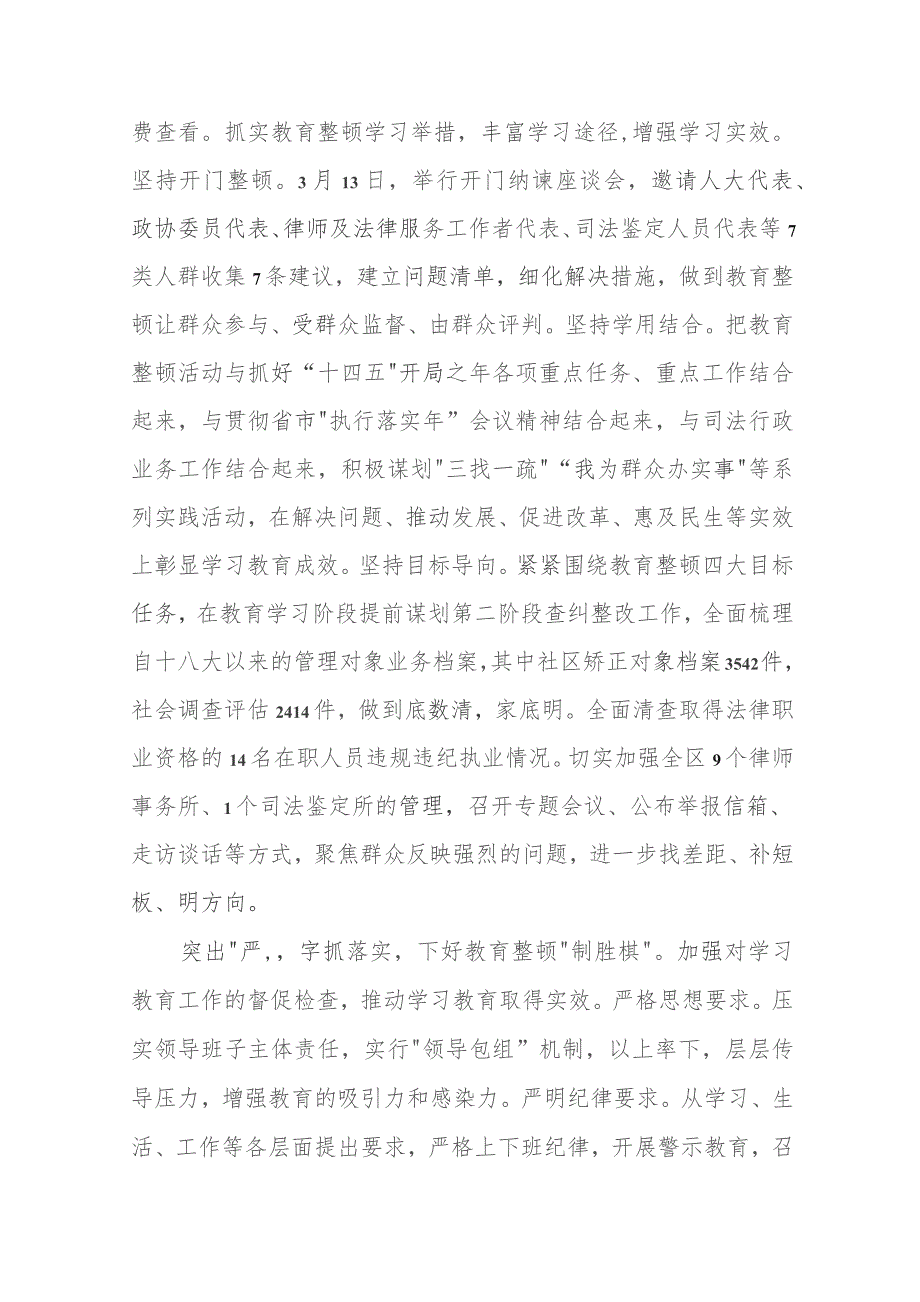 费查看。抓实教育整顿学习举措，丰富学习途径,增强学习实效。
坚持开门整顿。3月13日，举行开门纳谏座谈会，邀请人大代表、
政协委员代表、律师及法律服务工作者代表、司法鉴定人员代表等7
类人群收集7条建议，建立问题清单，细化解决措施，做到教育整
顿让群众参与、受群众监督、由群众评判。坚持学用结合。把教育
整顿活动与抓好“十四五"开局之年各项重点任务、重点工作结合
起来，与贯彻省市"执行落实年”会议精神结合起来，与司法行政
业务工作结合起来，积极谋划"三找一疏"“我为群众办实事"等系
列实践活动，在解决问题、推动发展、促进改革、惠及民生等实效
上彰显学习教育成效。坚持目标导向。紧紧围绕教育整顿四大目标
任务，在教育学习阶段提前谋划第二阶段查纠整改工作，全面梳理
自十八大以来的管理对象业务档案,其中社区矫正对象档案3542件，
社会调查评估2414件，做到底数清，家底明。全面清查取得法律职
业资格的14名在职人员违规违纪执业情况。切实加强全区9个律师
事务所、1个司法鉴定所的管理，召开专题会议、公布举报信箱、
走访谈话等方式，聚焦群众反映强烈的问题，进一步找差距、补短
板、明方向。
突出"严,，字抓落实，下好教育整顿"制胜棋"。加强对学习
教育工作的督促检查，推动学习教育取得实效。严格思想要求。压
实领导班子主体责任，实行"领导包组”机制，以上率下，层层传
导压力，增强教育的吸引力和感染力。严明纪律要求。从学习、生
活、工作等各层面提出要求，严格上下班纪律，开展警示教育，召